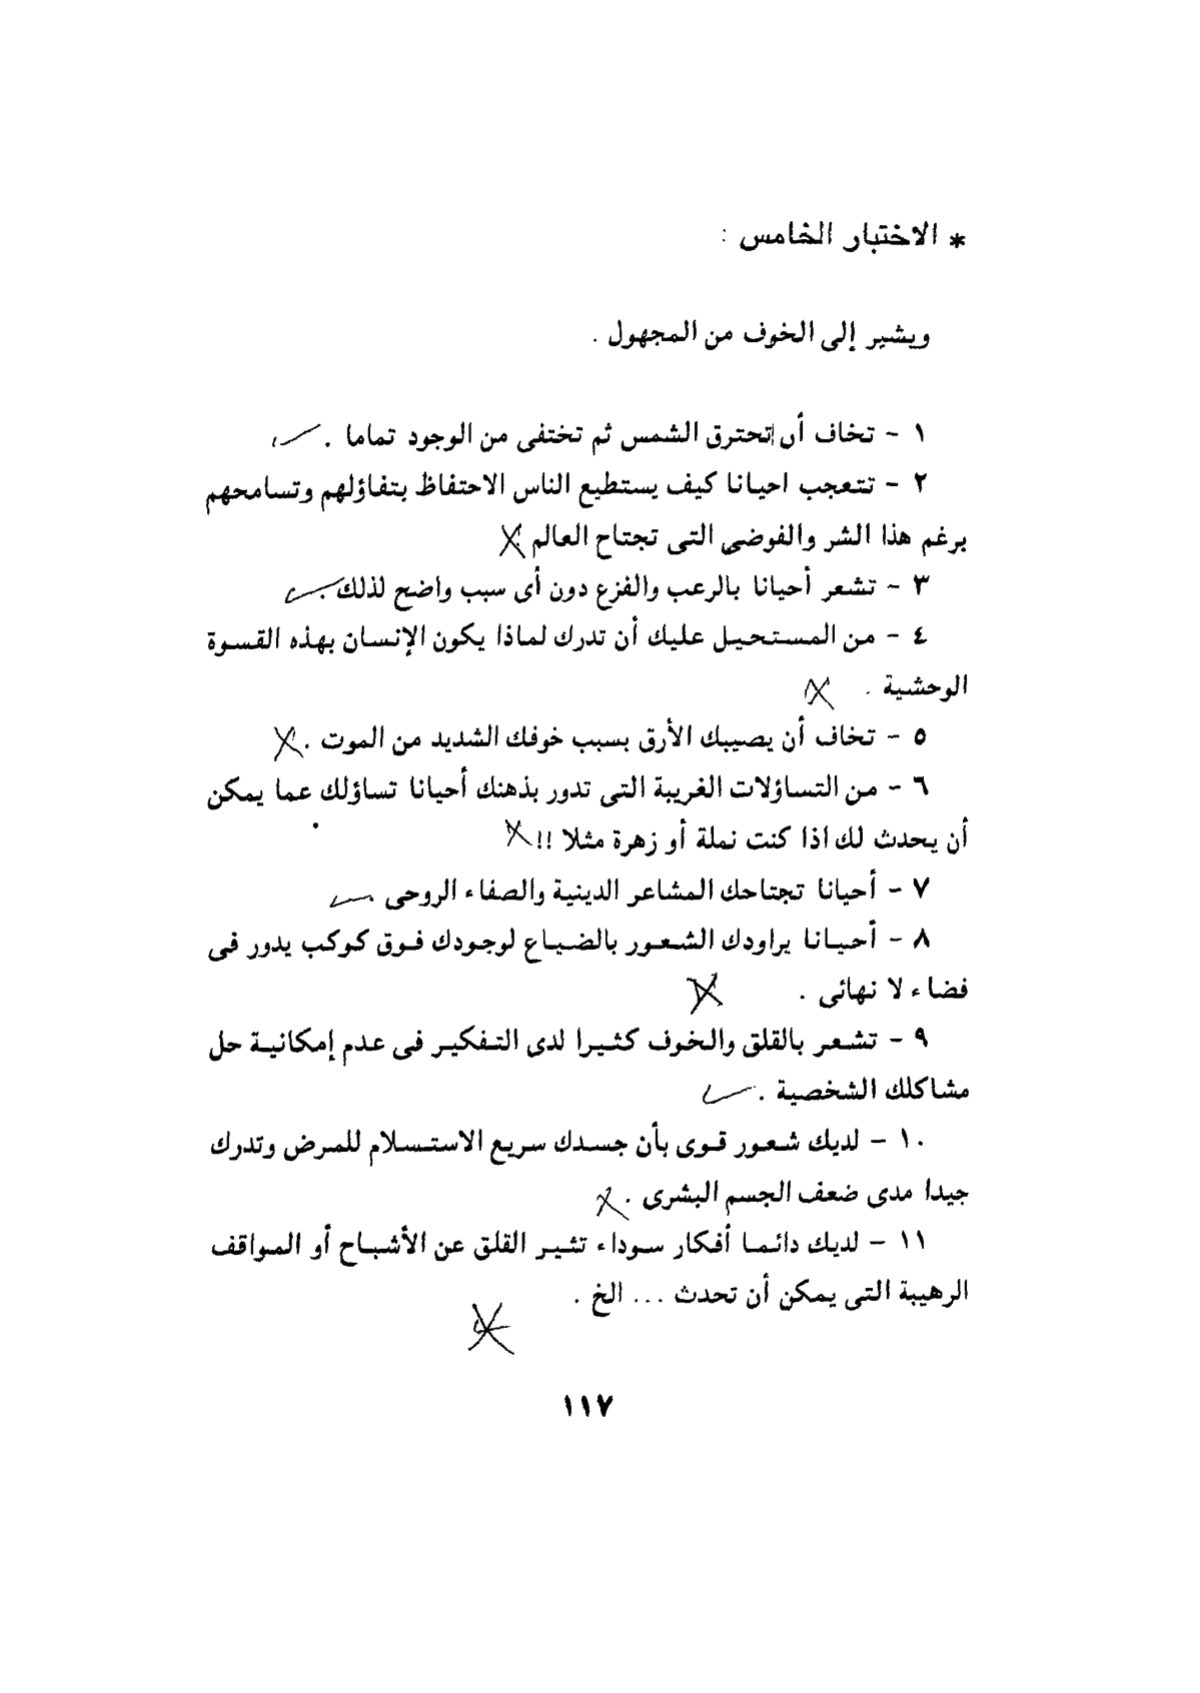 * الاختبار الخامس :
ويشير إلى الخوف من المجهول .
١ - تخاف أن تحترق الشمس ثم تختفى من الوجود تماما .
٢ - تتعجب احيانا كيف يستطيع الناس الاحتفاظ بتفاؤلهم وتسامحهم
برغم هذا الشر والفوضى التى تجتاح العالم .
٣ - تشعر أحيانا بالرعب والفزع دون أى سبب واضح لذلك .
٤ - من المستحيل عليك أن تدرك لماذا يكون الإنسان بهذه القسوة
الوحشية .
٥ - تخاف أن يصيبك الأرق بسبب خوفك الشديد من الموت .
٦ - من التساؤلات الغريبة التى تدور بذهنك أحيانا تساؤلك عما يمكن
أن يحدث لك اذا كنت نملة أو زهرة مثلا !!
٧ - أحيانا تجتاحك المشاعر الدينية والصفاء الروحى .
٨ - أحيانا يراودك الشعور بالضياع لوجودك فوق كوكب يدور فى
فضاء لا نهائى .
٩ - تشعر بالقلق والخوف كثيرا لدى التفكير فى عدم إمكانية حل
مشاكلك الشخصية .
١٠ - لديك شعور قوى بأن جسدك سريع الاستسلام للمرض وتدرك
جيدا مدى ضعف الجسم البشرى .
١١ - لديك دائما أفكار سوداء تثير القلق عن الأشباح أو المواقف
الرهيبة التى يمكن أن تحدث ... الخ .
١١٧